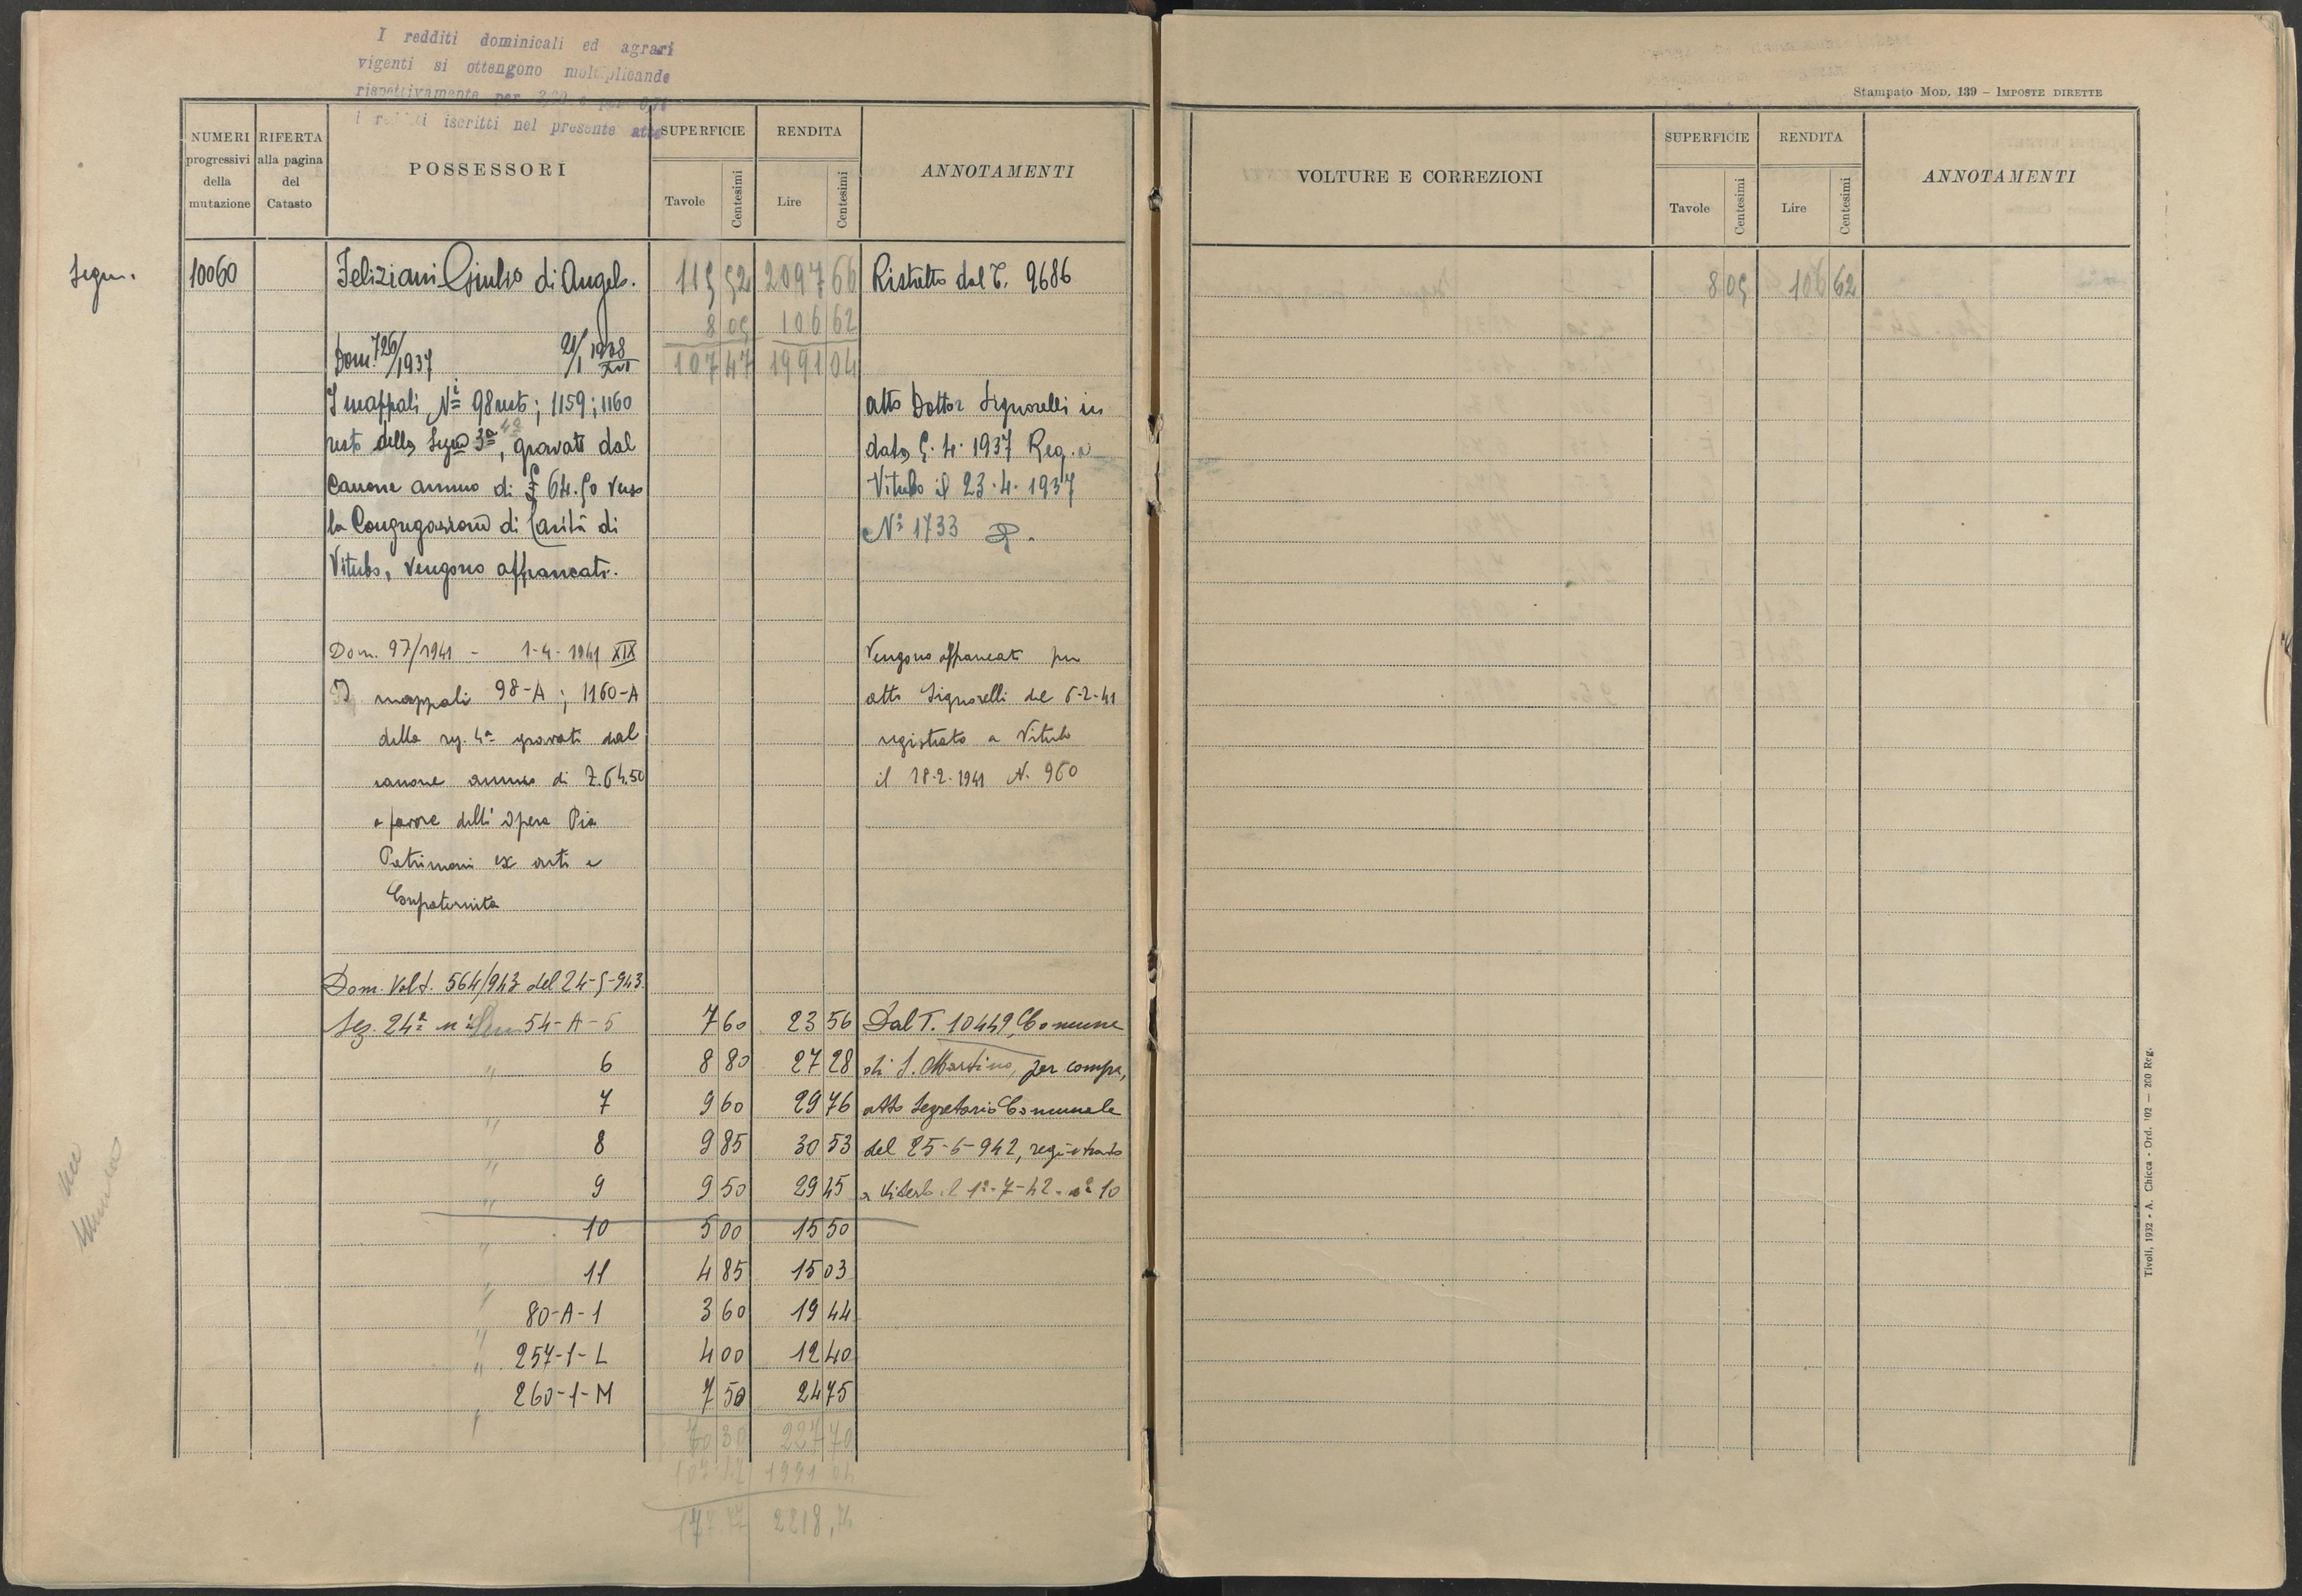 I redditi dominicali ed agrari
vigenti si ottengono moltiplicande
rispettivamente per
iscritti nel presente atto
Stampato Mod. 139 - Imposte dirette
NUMERI progressivi della mutazione
RIFERTA alla pagina del Catasto
POSSESSORI
SUPERFICIE
Tavole Centesimi
RENDITA
Lire Centesimi
ANNOTAMENTI
Segue.
10060 Feliziani Giulio di Angelo. 115 52 2097 66 Ristretto dal T. 9686
8 05 106 62
Dom. 726/1937 21/1 1938 XVI 107 47 1991 04
I mappali Ni 98 resto; 1159; 1160
resto della Sezne 3a 4a, gravati dal
Canone annuo di £ 64.50 verso
la Congregazione di Carità di
Viterbo, vengono affrancati.
atto Dottor Signorelli in
data 5.4.1937 Reg. a
Viterbo il 23.4.1937
No 1733
Dom. 97/1941 - 1-4-1941 XIX
I mappali 98-A; 1160-A
della sez. 4a gravati dal
canone annuo di £.64.50
a favore dell'Opera Pia
Patrimoni ex arti e
Confraternita
Vengono affrancati per
atto Signorelli del 6-2-41
registrato a Viterbo
il 18-2-1941 N. 960
Dom. Volt. 564/943 del 24-5-943.
Sez. 24a ni 54-A-5 7 60 23 56 Dal T. 10449, Comune
" 6 8 80 27 28 di S. Martino, per compra,
" 7 9 60 29 76 atto Segretario Comunale
" 8 9 85 30 53 del 25-6-942, registrato
" 9 9 50 29 45 a Viterbo il 1o-7-42 - no 10
" 10 5 00 15 50
" 11 4 85 15 03
" 80-A-1 3 60 19 44
" 257-1-L 4 00 12 40
" 260-1-M 7 50 24 75
70 30 227 70
107 47 1991 04
177.77 2218,74
VOLTURE E CORREZIONI
SUPERFICIE
Tavole Centesimi
RENDITA
Lire Centesimi
ANNOTAMENTI
8 05 106 62
Tivoli, 1932 - A. Chicca - Ord. 102 - 200 Reg.